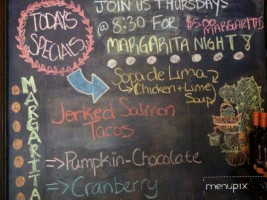 TODAYS SPECIALS
JOIN US THURSDAYS
@ 8:30 FOR $5.00 MARGARITAS
MARGARITA NIGHT
Sopa de Lima
Chicken + Lime
Soup
Jerked Salmon
Tacos
⇒ Pumpkin-Chocolate
⇒ Cranberry
MARGARITA
menupix